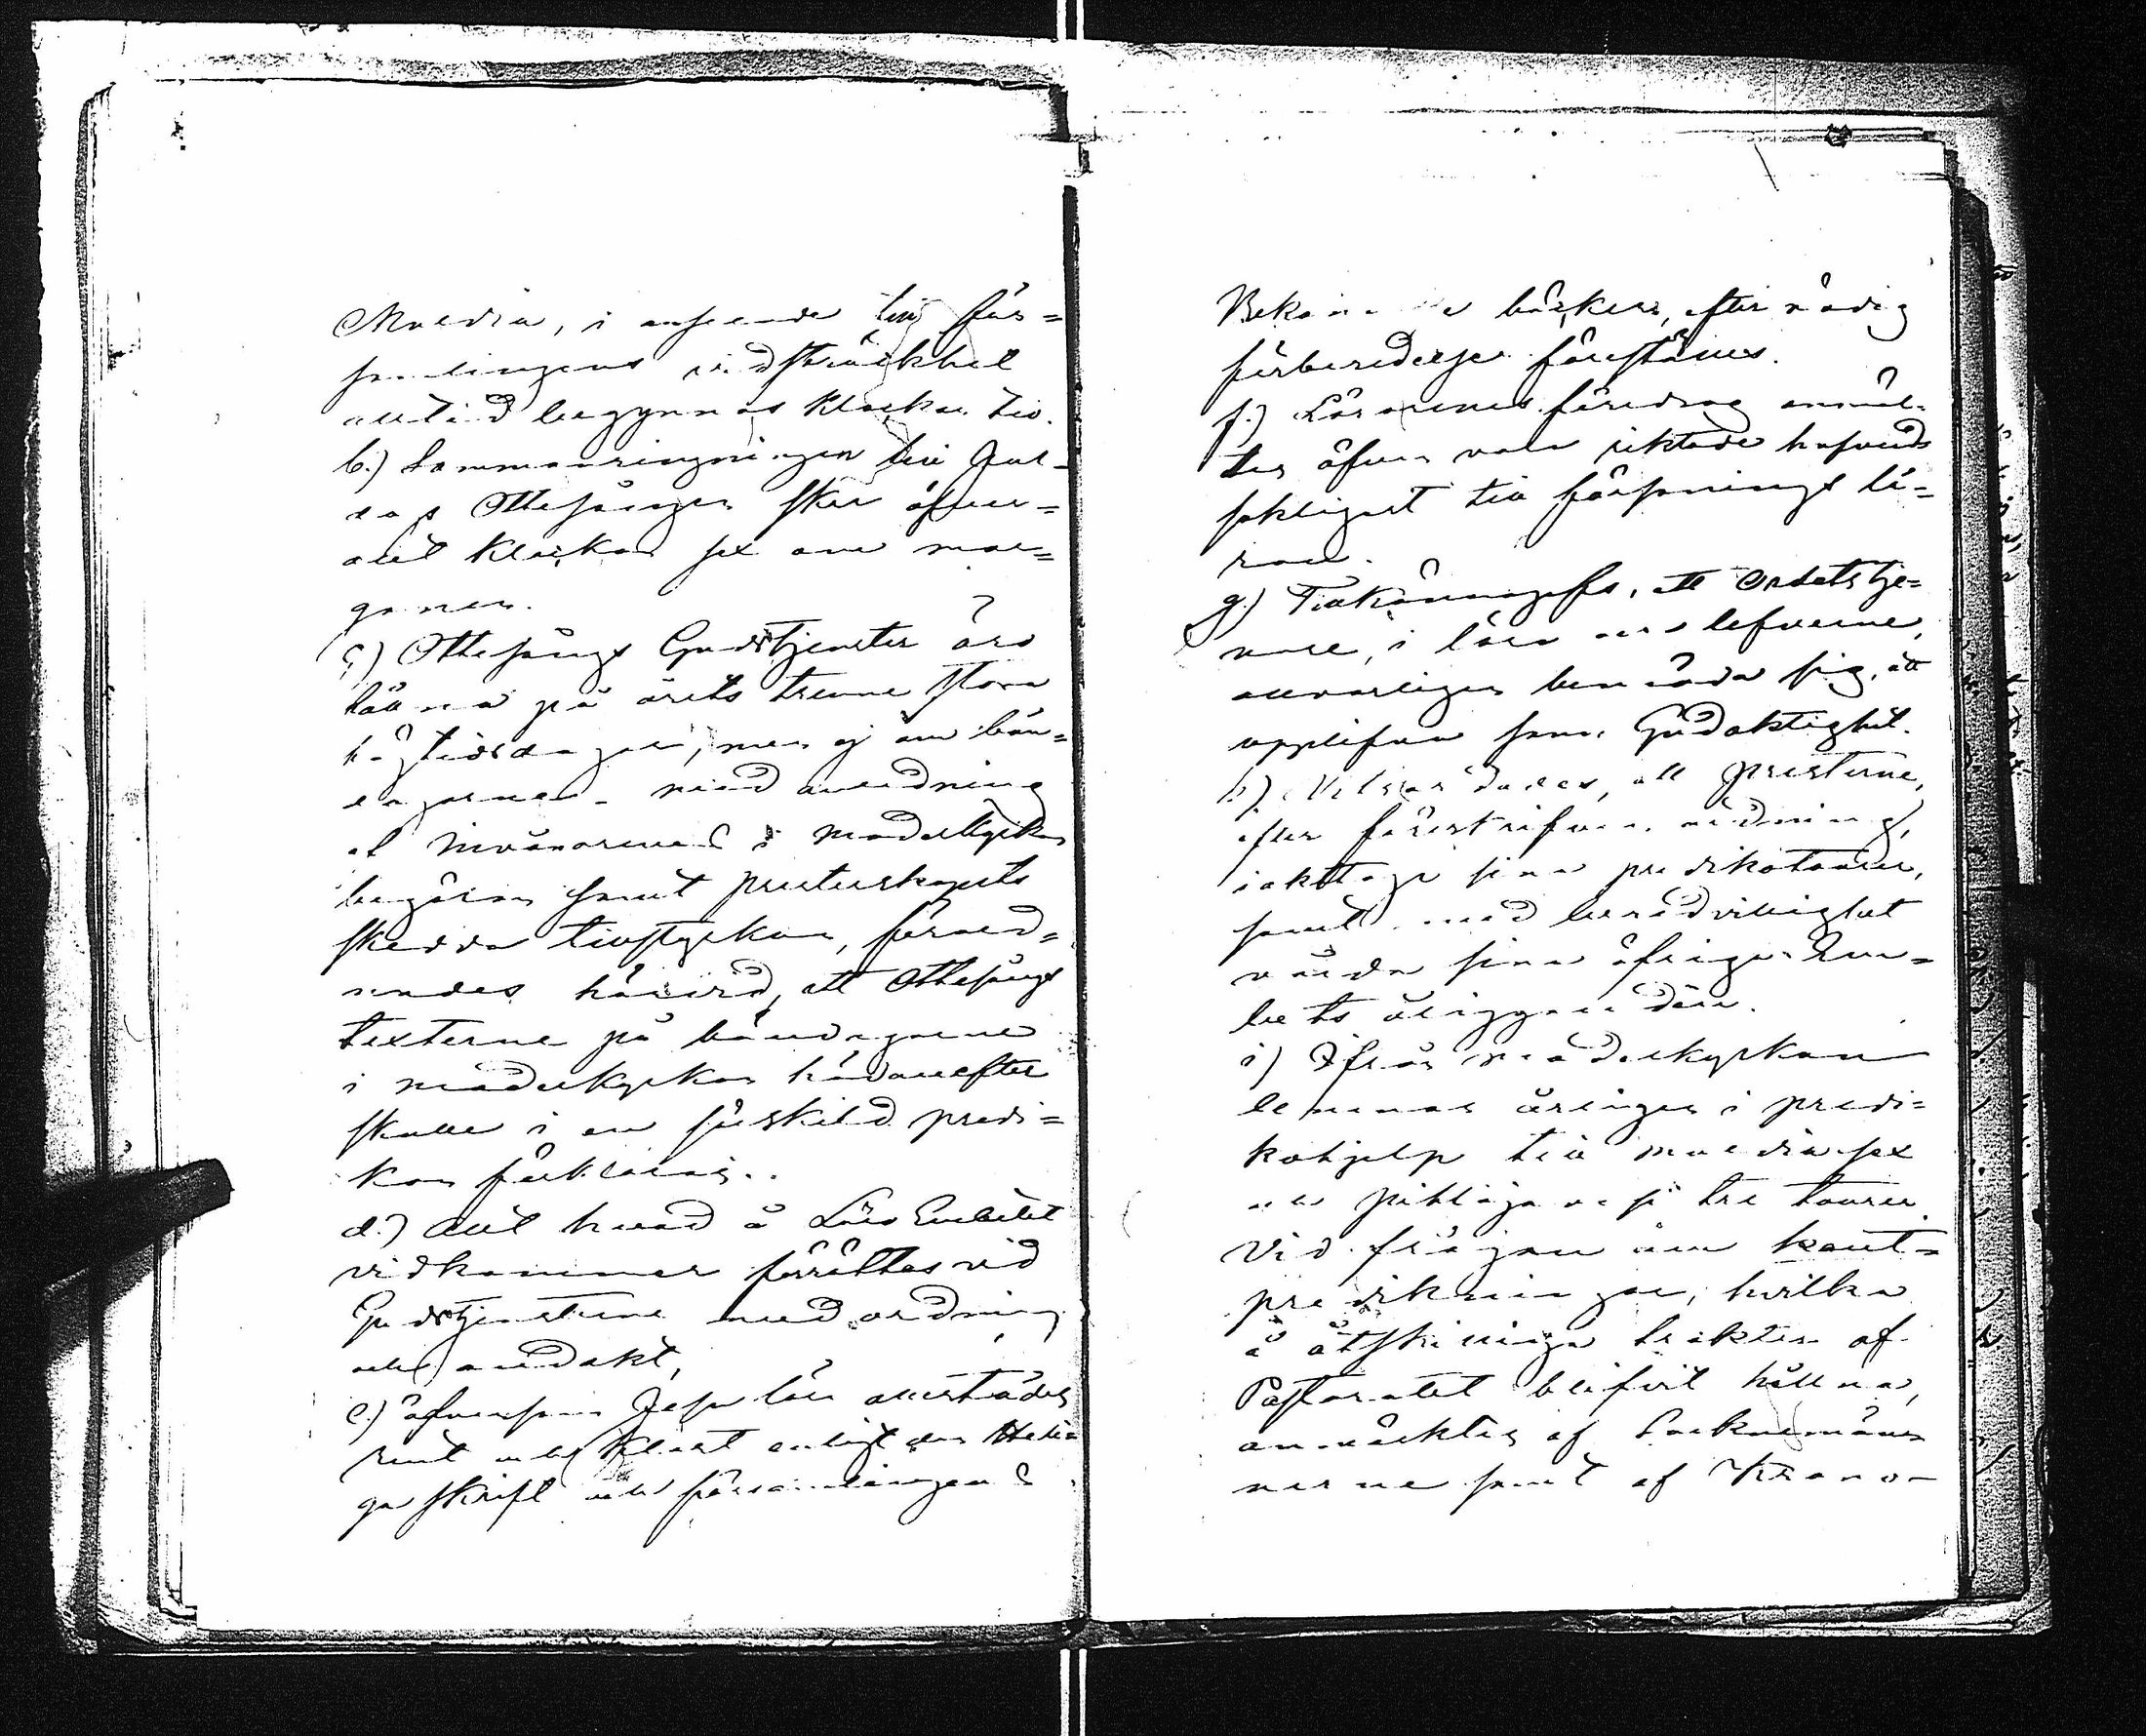 Muldia, i anseende till för=
samlingens vidsträckhet
alltid begynnas klockan tio.
b.) Sammanringningen till Jul=
dags Ottesången sker äfven=
ledes klockan sex om mor=
gonen.
c.) Ottesångs Gudstjenster äro
hållna på årets trenne stora
högtidsdagar, men ej om bön=
dagarne. Med anledning
af invånarenes i moderkyrkan
begäran samt presterskapets
skedda tillstyrkan, förord=
nades härvid, att Ottesångs
texterne på böndagarne
i moderkyrkan hädanefter
skulle i en särskild predi=
kan förklaras.
d.) Allt hvad å Läro Embetet
vidkommer förrättas vid
Gudstjensterne med ordning
och andakt,
e.) äfvensom Jesu lära allestädes
rent och klart enligt den Heli=
ga skrift och församlingens
Bekännelse böcker, efter nödig
förberedelse föreställes.
f.) Lärarenes föredrag anmäl=
tes äfven vara riktade hufvud=
sakligast till försonings lä=
ran.
g.) Tillkännagafs, att Ordets tje=
nare, i lära och lefverne,
allvarligen bemöda sig, att
upplifva sann Gudaktighet.
h.) Vitsordades, att presterne,
efter föreskrifven ordning,
iakttaga sina predikoturer,
samt med beredvillighet
vårda sina öfriga Em=
bets åligganden.
i) Ifrån moderkyrkan
lemnas årligen i predi=
kohjelp till Muldia sex
och Pihlaja vesi tre turer.
Vid frågan om hant=
predikningar, hvilka
å åtskilliga trakter af
Pastoratet blifvit hållna,
anmärktes af Socknemän=
nerne samt af Krono=